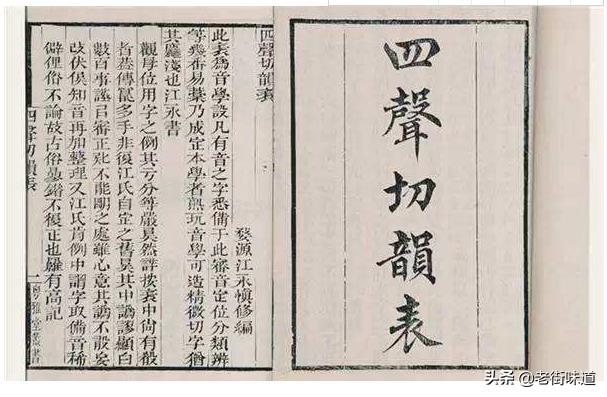 四聲切韻表
四聲切韻表
婺源江永愼修編
此表爲音學設凡有音之字悉備于此審音定位分類辨
等幾番易藁乃成定本學者熟玩音學可造精微切字猶
其麤淺也江永書
觀母位用字之例其分等嚴矣然詳按表中尙有殽
者葢傳寫多手非復江氏自定之舊矣其中譌謬顯白
數百事謹已審正訖不能剬之處雖心意其譌不敢妄
改伏俟知音再加整理又江氏例中謂字取備音稀
僻俚俗不論故古俗不復正也羅有高記
四聲切韻表
一
粤雅堂叢書
头条 @老街味道